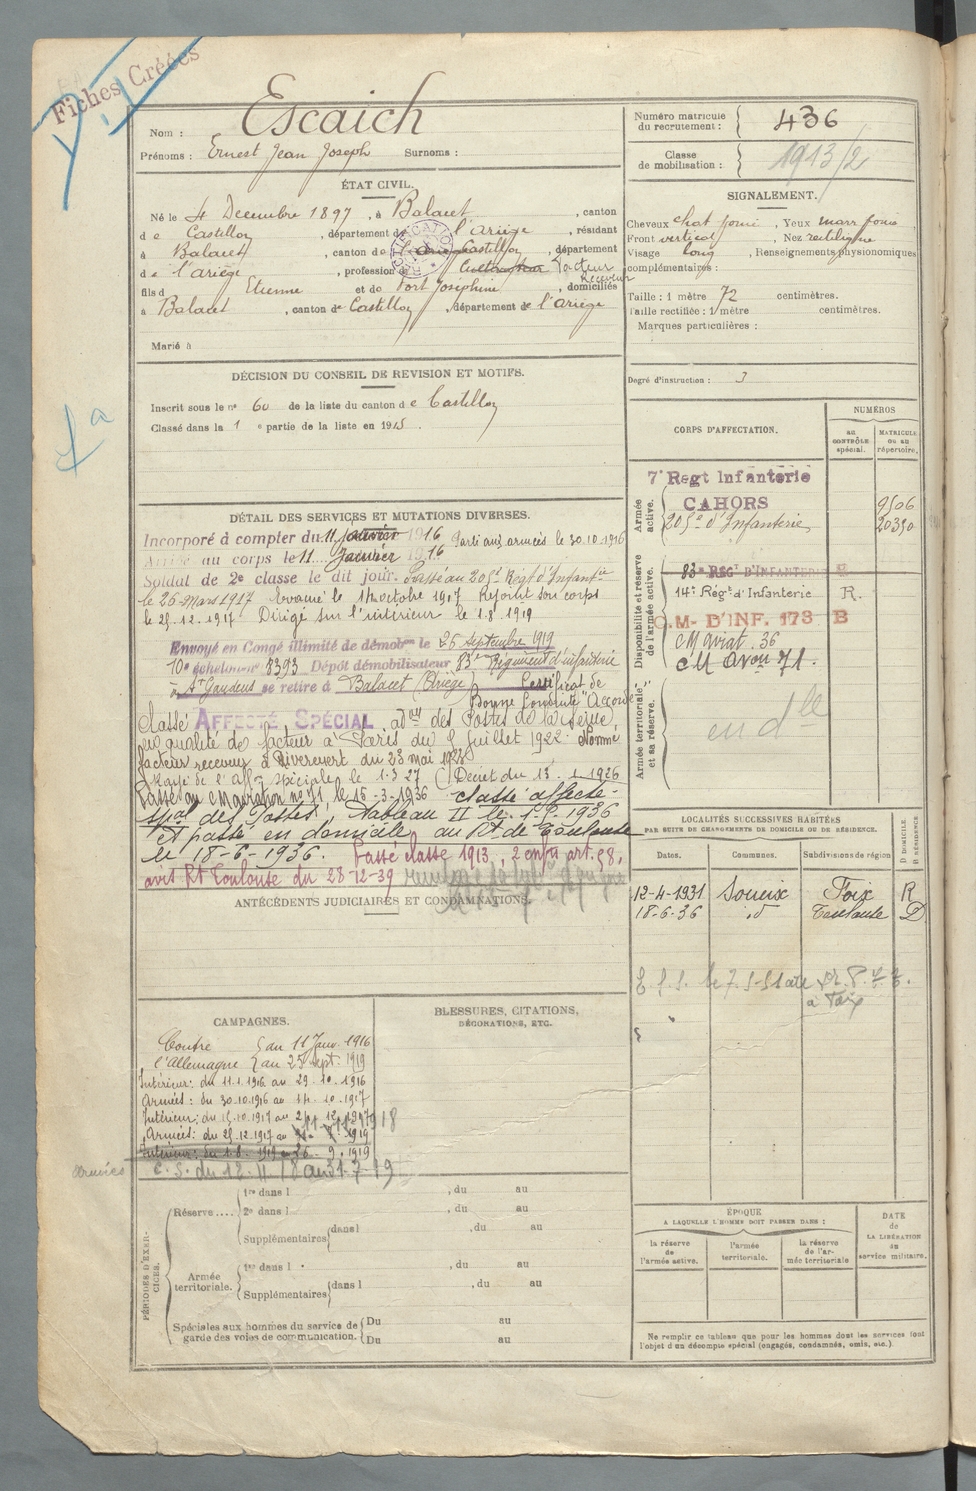 Fiches Créées
Nom : Escaich
Prénoms : Ernest Jean Joseph Surnoms :
Numéro matricule du recrutement : 436
Classe de mobilisation : 1913/2
ÉTAT CIVIL.
Né le 4 Décembre 1897, à Balacet, canton
de Castillon, département de l'Ariège, résidant
à Balacet, canton de Castillon, département
de l'ariège, profession de Cultivateur Facteur
Receveur
fils d Etienne et de Fort Joséphine, domiciliés
à Balacet, canton de Castillon, département de l'ariège
Marié à
SIGNALEMENT.
Cheveux chat foncé, Yeux marr foncé
Front vertical, Nez rectiligne
Visage long, Renseignements physionomiques
complémentaires :
Taille : 1 mètre 72 centimètres.
Taille rectifiée : 1 mètre centimètres.
Marques particulières :
Degré d'instruction : 3
DÉCISION DU CONSEIL DE REVISION ET MOTIFS.
Inscrit sous le n° 60 de la liste du canton de Castillon
Classé dans la 1e partie de la liste en 1915.
DÉTAIL DES SERVICES ET MUTATIONS DIVERSES.
Incorporé à compter du 11 janvier 1916 Parti aux armées le 30.10.1916
Arrivé au corps le 11 Janvier 1916
Soldat de 2e classe le dit jour. Passé au 205e Régt d'Infantie
le 26 Mars 1917 Evacué le 14 octobre 1917 Rejoint son corps
le 25.12.1917 Dirigé sur l'intérieur le 1.8.1919
Envoyé en Congé illimité de démobon le 26 septembre 1919
10e échelon n° 8393 Dépôt démobilisateur 83e Régiment d'infanterie
à St Gaudens se retire à Balacet (Ariège) Certificat de
Bonne Conduite "Accordé"
Classé AFFECTÉ SPÉCIAL admon des Postes de la Seine,
en qualité de facteur à Paris du 8 Juillet 1922. Nommé
facteur receveur à Rivèrenert du 23 mai 1923
Rayé de l'affon spéciale le 1.3.27 (Décret du 13.1.1926
Passé au CM aviation n° 71, le 15-3-1936 classé affecté
spal des Postes, Tableau II le 1.9.1936
et passé en domicile au Rt de Toulouse
le 18-6-1936. Passé classe 1913, 2 enfts art. 58,
avis Rt Toulouse du 28-12-39
ANTÉCÉDENTS JUDICIAIRES ET CONDAMNATIONS.
CORPS D'AFFECTATION.
NUMÉROS
au CONTRÔLE spécial.
MATRICULE ou au répertoire.
Armée active.
7e Regt Infanterie
CAHORS 9506
205e d'Infanterie 20390
Disponibilité et réserve de l'armée active.
83e REGT D'INFANTERIE R
14e Régt d'Infanterie R.
C.M. D'INF. 173 B
CM aviat. 36
CM avon 71.
Armée territoriale et sa réserve.
en dlle
LOCALITÉS SUCCESSIVES HABITÉES
PAR SUITE DE CHANGEMENTS DE DOMICILE OU DE RÉSIDENCE.
Dates. Communes. Subdivisions de région D DOMICILE R RÉSIDENCE
12-4-1931 Soueix Foix R
18-6-36 id Toulouse D
à Foix
CAMPAGNES.
Contre du 11 Janv. 1916
l'Allemagne au 25 sept. 1919
Intérieur : du 11.1.1916 au 29.10.1916
Armées : du 30.10.1916 au 14.10.1917
Intérieur : du 15.10.1917 au 24.12.1917
Armées : du 25.12.1917 au 11.11.1918
Intérieur : du 1.8.1919 au 26.9.1919
armées C. S. du 12.11.18 au 31.7.19
BLESSURES, CITATIONS,
DÉCORATIONS, ETC.
PÉRIODES D'EXERCICES.
Réserve....
1re dans l , du au
2e dans l , du au
Supplémentaires dans l , du au
Armée territoriale.
1re dans l , du au
Supplémentaires dans l , du au
Spéciales aux hommes du service de garde des voies de communication.
Du au
Du au
ÉPOQUE
A LAQUELLE L'HOMME DOIT PASSER DANS :
la réserve de l'armée active.
l'armée territoriale.
la réserve de l'armée territoriale
DATE de LA LIBÉRATION du service militaire.
Ne remplir ce tableau que pour les hommes dont les services font
l'objet d'un décompte spécial (engagés, condamnés, omis, etc.).